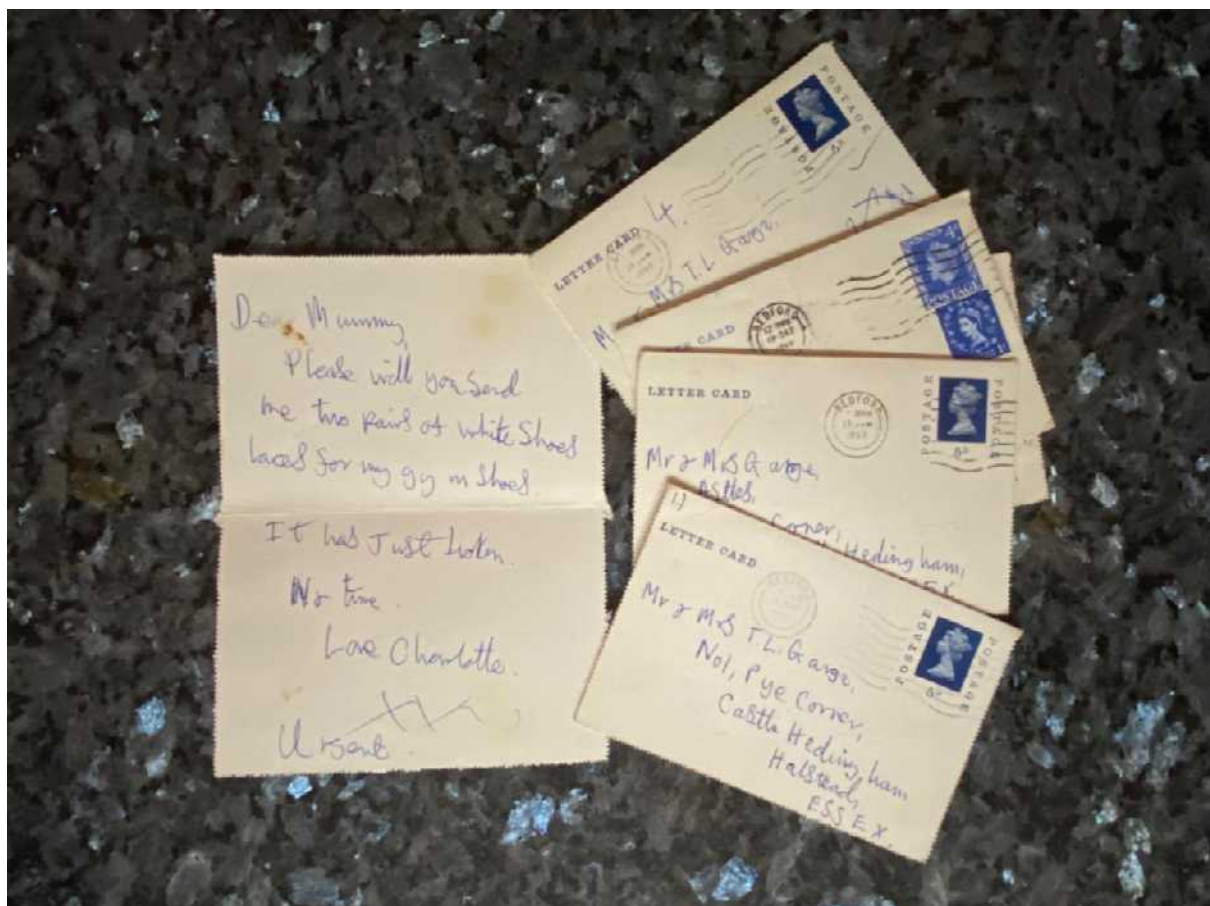 Dear Mummy,
Please will you send
me two pairs of white Shoes
laces for my gym Shoes.
It has Just broken.
No time.
Love Charlotte.
XX
Urgent.
POSTAGE
POSTAGE
LETTER CARD
4.
Mrs T.L. Gage,
POSTAGE
BEDFORD
CARD
LETTER CARD
BEDFORD
POSTAGE
POSTAGE
Mr & Mrs Gage,
Corner,
Hedingham,
LETTER CARD
POSTAGE
POSTAGE
Mr & Mrs T.L. Gage,
No1, Pye Corner,
Castle Hedingham
Halstead,
ESSEX.